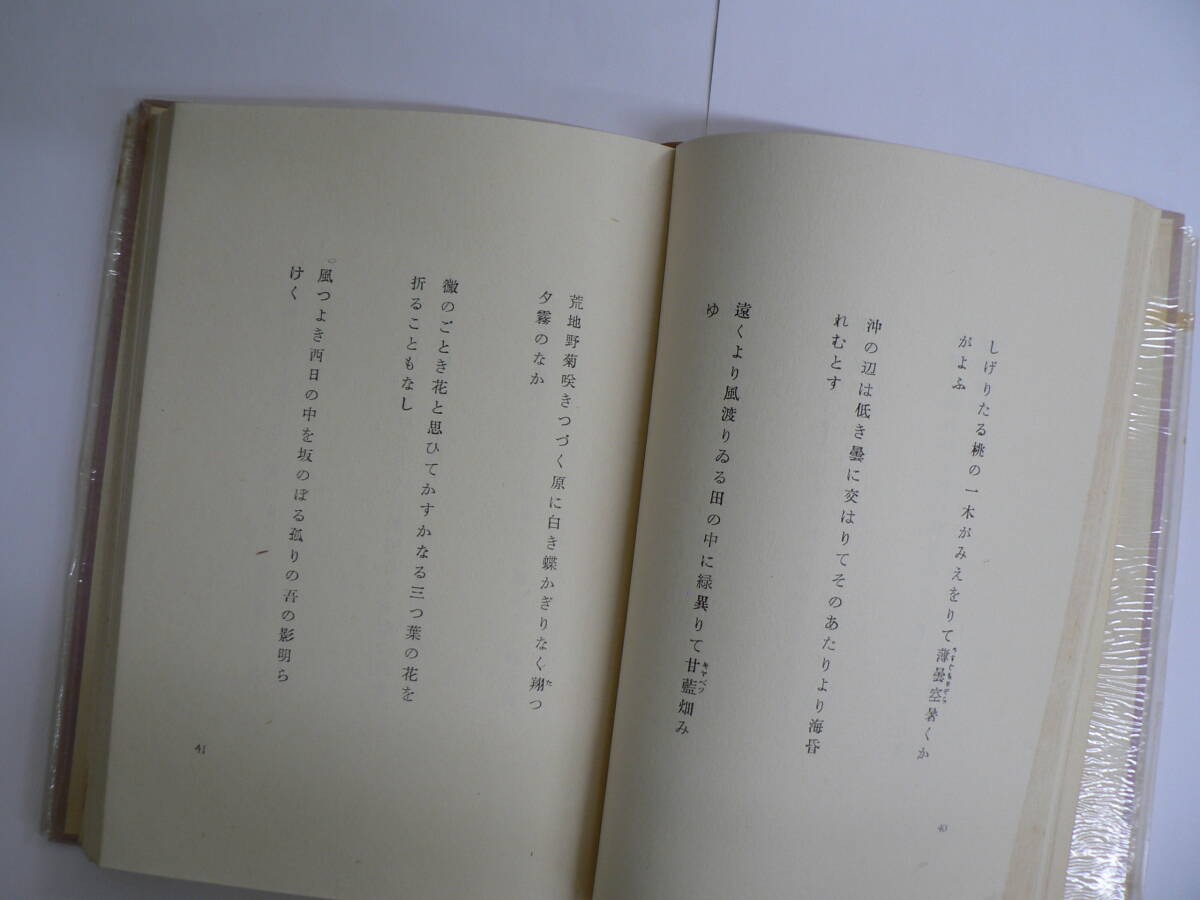 しげりたる桃の一木がみえをりて薄曇空暑くか
がよふ
沖の辺は低き曇に交はりてそのあたりより海昏
れむとす
遠くより風渡りゐる田の中に緑異りて甘藍畑み
ゆ
40
荒地野菊咲きつづく原に白き蝶かぎりなく翔つ
夕霧のなか
黴のごとき花と思ひてかすかなる三つ葉の花を
折ることもなし
風つよき西日の中を坂のぼる孤りの吾の影明ら
けく
41